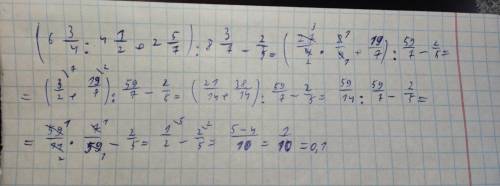 (6 3/4 : 4 1/2 + 2 5/7) : 8 3/7 - 2/5 = (27/4 · 2/9 + 19/7) : 59/7 - 2/5 =
= (3/2 + 19/7) : 59/7 - 2/5 = (21/14 + 38/14) : 59/7 - 2/5 = 59/14 : 59/7 - 2/5 =
= 59/14 · 7/59 - 2/5 = 1/2 - 2/5 = 5-4/10 = 1/10 = 0,1